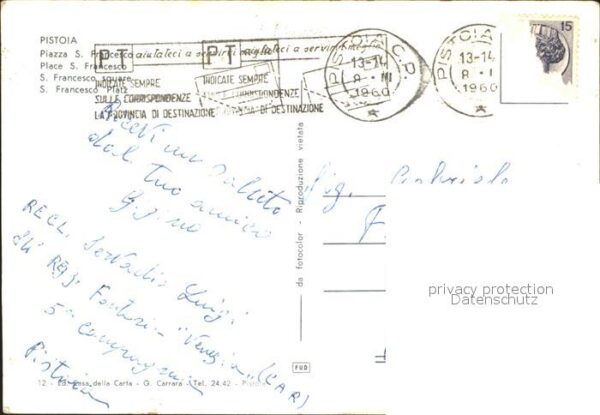 PISTOIA
Piazza S. Francesco
Place S. Francesco
S. Francesco square
S. Francesco Platz
aiutateci a servirvi meglio
aiutateci a servirvi meglio
PT PT
INDICATE SEMPRE
SULLE CORRISPONDENZE
LA PROVINCIA DI DESTINAZIONE
INDICATE SEMPRE
CORRISPONDENZE
PROVINCIA DI DESTINAZIONE
PISTOIA C.P.
13-14
8 III
1960
PISTOIA
13-14
8 I
1960
15
Ricevi un saluto
dal tuo amico
Gigino
RECL. Servadio Luigi
Regg. Fanteria "Venezia" (CAR)
5ª Compagnia
Pistoia
Sig.
F
da fotocolor - Riproduzione vietata
privacy protection
Datenschutz
FUD
12 - Ed. Casa della Carta - G. Carrara - Tel. 24.42 - Pistoia